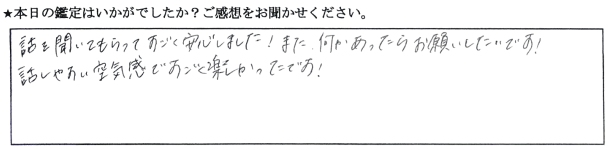 ★本日の鑑定はいかがでしたか？ご感想をお聞かせください。
話を聞いてもらってすごく安心しました！また、何かあったらお願いしたいです！
話しやすい空気感ですごく楽しかったです！